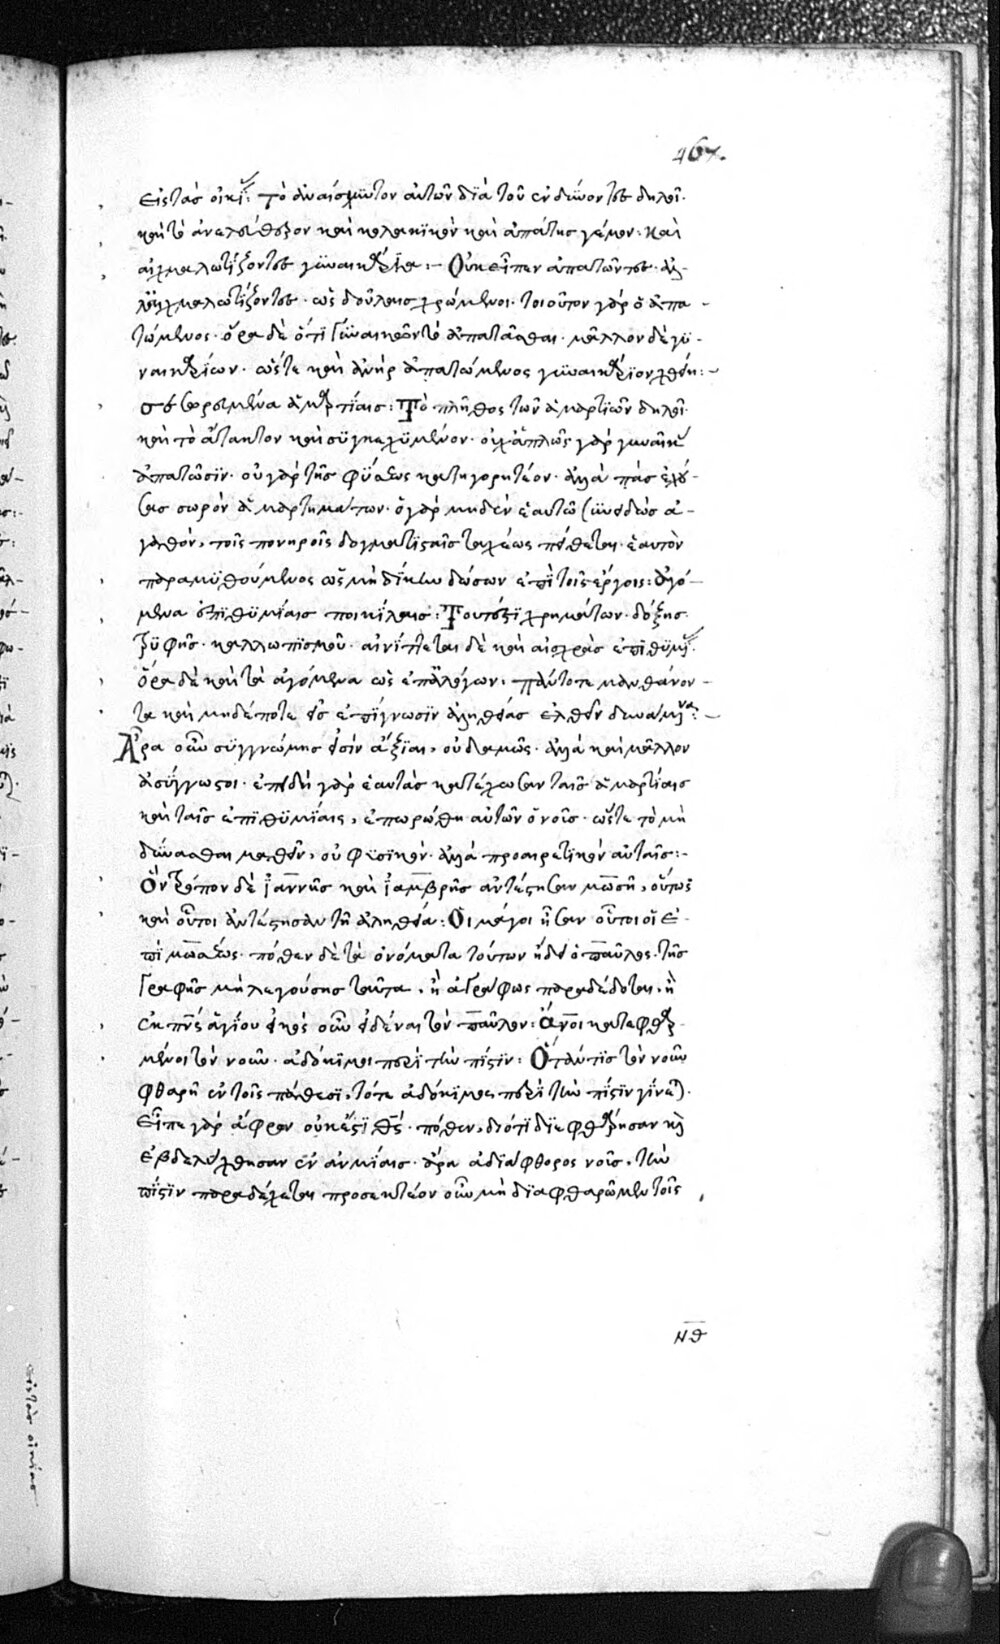 467.
εἰς τὰς οἰκί: Τὸ ἀναίσχυντον αὐτῶν διὰ τοῦ ἐνδύνοντες δηλοῖ·
καὶ τὸ ἀνελεύθερον καὶ κολακικὸν καὶ ἀπάτης γέμον: Καὶ
αἰχμαλωτίζοντες γυναικάρια:– Οὐκ εἶπεν ἀπατῶντες· ἀλ–
λ' αἰχμαλωτίζοντες· ὡς δούλαις χρώμενοι. τοιοῦτον γὰρ ὁ ἀπα–
τώμενος· ὅρα δὲ ὅτι γυναικῶν τὸ ἀπατᾶσθαι· μᾶλλον δὲ γυ–
ναικαρίων· ὥστε καὶ ἀνὴρ ἀπατώμενος γυναικάριον ἐστίν:–
σεσωρευμένα ἁμαρτίαις: Τὸ πλῆθος τῶν ἁμαρτιῶν δηλοῖ·
καὶ τὸ ἄτακτον καὶ συγκεχυμένον· οὐχ ἁπλῶς γὰρ γυναῖκ
ἀπατῶσιν· οὐ γὰρ τῆς φύσεως κατηγορητέον· ἀλλὰ τὰς ἐχού–
σας σωρὸν ἁμαρτημάτων. ὁ γὰρ μηδὲν ἑαυτῷ συνειδὼς ἀ–
γαθὸν, τοῖς πονηροῖς δογματισταῖς ταχέως πείθεται· ἑαυτὸν
παραμυθούμενος ὡς μὴ δίκην δώσων ἐπὶ τοῖς ἔργοις: Ἀγό–
μενα ἐπιθυμίαις ποικίλαις: Τουτέστι χρημάτων· δόξης·
τρυφῆς· καλλωπισμοῦ· αἰνίττεται δὲ καὶ αἰσχρὰς ἐπιθυμί.
Ὅρα δὲ καὶ τὰ ἀγόμενα ὡς ἐπ' ἀλόγων: Πάντοτε μανθάνον–
τα καὶ μηδέποτε εἰς ἐπίγνωσιν ἀληθείας ἐλθεῖν δυνάμενα:–
Ἆρα οὖν συγγνώμης εἰσὶν ἄξιαι, οὐδαμῶς· ἀλλὰ καὶ μᾶλλον
ἀσύγγνωστοι· ἐπειδὴ γὰρ ἑαυτὰς κατέχωσαν ταῖς ἁμαρτίαις
καὶ ταῖς ἐπιθυμίαις, ἐπωρώθη αὐτῶν ὁ νοῦς· ὥστε τὸ μὴ
δύνασθαι μαθεῖν, οὐ φυσικὸν· ἀλλὰ προαιρετικὸν αὐταῖς:–
Ὃν τρόπον δὲ Ἰαννῆς καὶ Ἰαμβρῆς ἀντέστησαν μωσῇ, οὕτως
καὶ οὗτοι ἀντέστησαν τῇ ἀληθείᾳ: Οἱ μάγοι ἦσαν οὗτοι οἱ ἐ–
πὶ μωσέως· πόθεν δὲ τὰ ὀνόματα τούτων ᾔδει ὁ παῦλος· τῆς
γραφῆς μὴ λεγούσης ταῦτα, ἢ ἀγράφως παραδέδοται, ἢ
ἐκ πνς ἁγίου εἰκὸς οὖν εἰδέναι τὸν παῦλον: Ἄνοι κατεφθαρ–
μένοι τὸν νοῦν· ἀδόκιμοι περὶ τὴν πίστιν: Ὅταν τις τὸν νοῦν
φθαρῇ ἐν τοῖς πάθεσι, τότε ἀδόκιμος περὶ τὴν πίστιν γίνεται.
Εἶπε γὰρ ἄφρων οὐκ ἔστι θς· πόθεν, διότι διεφθάρησαν καὶ
ἐβδελύχθησαν ἐν ἀνομίαις· ἄρα ἀδιάφθορος νοῦς, τὴν
πίστιν παραδέχεται προσεκτέον οὖν μὴ διαφθαρῶμεν τοῖς
νθ
εἰς τὰς οἰκίας